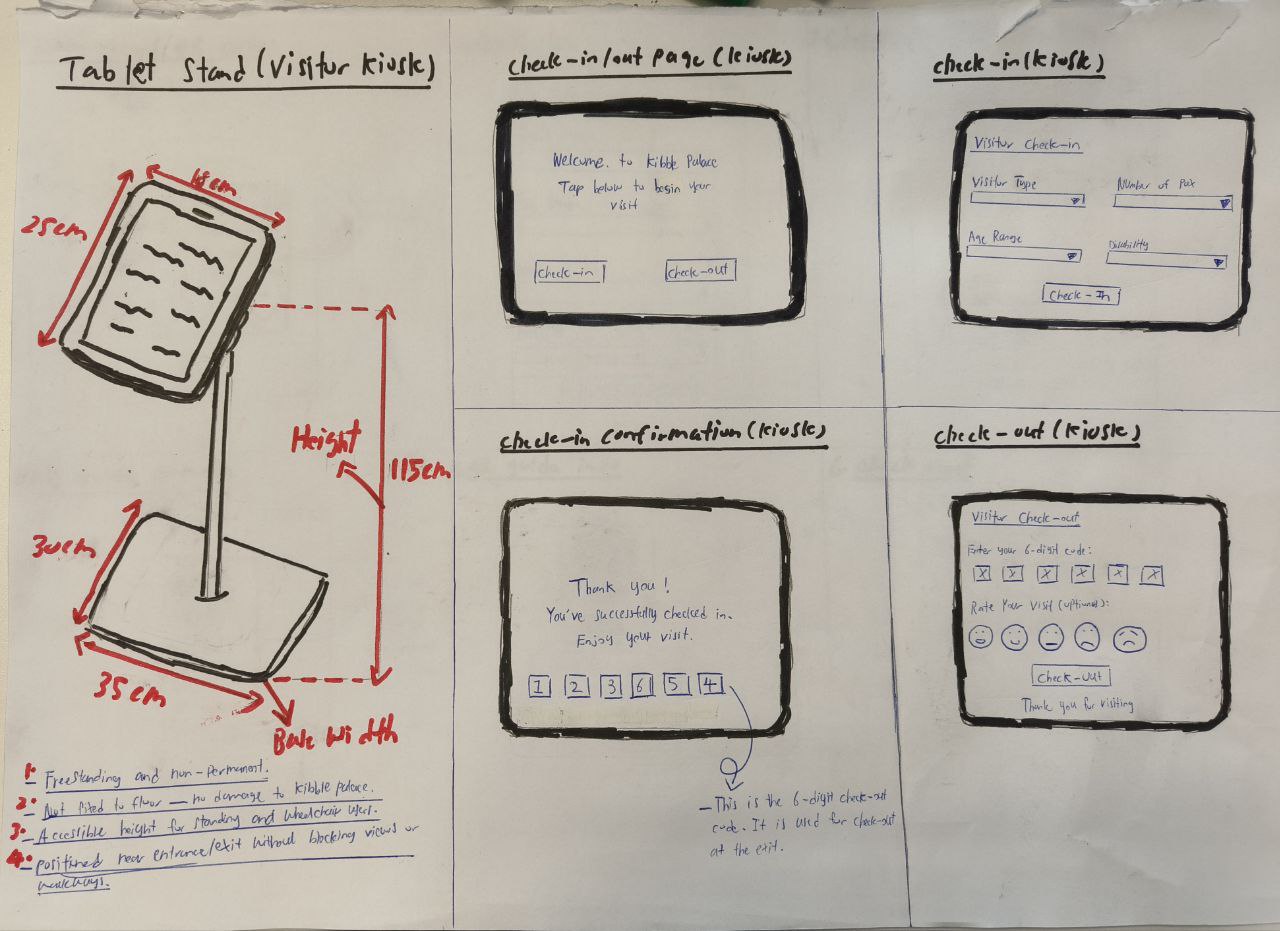 Tablet Stand (Visitor Kiosk)
18cm
25cm
Height
115cm
30cm
35cm
Base Width
1. Freestanding and non-permanent.
2. Not fixed to floor — no damage to Kibble palace.
3. Accessible height for standing and wheelchair users.
4. positioned near entrance/exit without blocking views or
walkways.
check-in/out page (kiosk)
Welcome. to Kibble Palace
Tap below to begin your
visit
Check-in
Check-out
check-in (kiosk)
Visitor Check-in
Visitor Type
Number of Pax
Age Range
Disability
Check-In
check-in confirmation (kiosk)
Thank you!
You've successfully checked in.
Enjoy your visit.
1 2 3 6 5 4
- This is the 6-digit check-out
code. It is used for check-out
at the exit.
check-out (kiosk)
Visitor Check-out
Enter your 6-digit code:
X X X X X X
Rate Your Visit (optional):
Check-out
Thank you for visiting